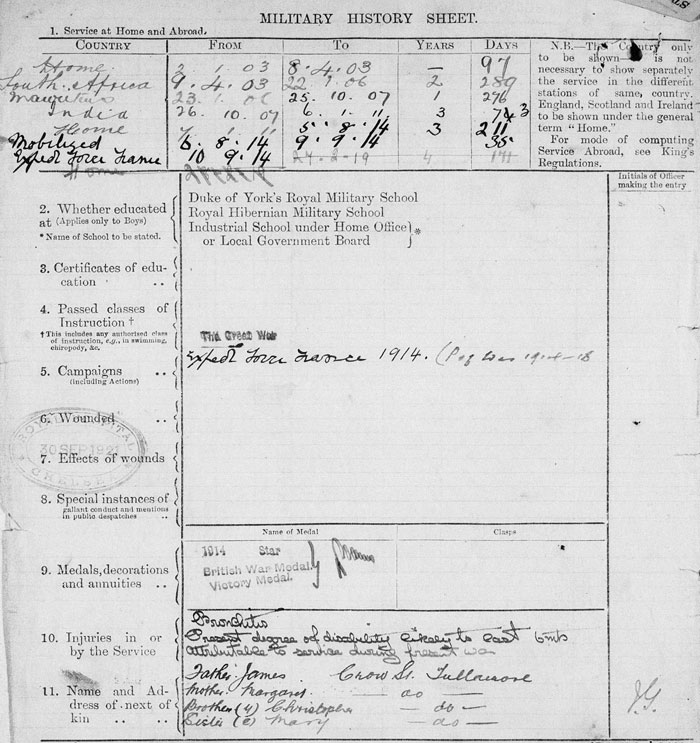 MILITARY HISTORY SHEET.
1. Service at Home and Abroad.
COUNTRY FROM TO YEARS DAYS
Home 2 1 03 8. 4. 03 — 97
South Africa 9. 4 03 22 1 06 2 289
Mauritius 23. 1. 06 25. 10. 07 1 276
India 26. 10. 07 6. 1. 11 3 73
Home 7 1 11 5. 8. 14 3 211
Mobilized 6. 8. 14 9. 9. 14 35
Expedt Force France 10 9. 14 4
Home
N.B.—The Country only
to be shown— is not
necessary to show separately
the service in the different
stations of same, country.
England, Scotland and Ireland
to be shown under the general
term "Home."
For mode of computing
Service Abroad, see King's
Regulations.
Initials of Officer
making the entry
2. Whether educated
at (Applies only to Boys)
* Name of School to be stated.
Duke of York's Royal Military School
Royal Hibernian Military School
Industrial School under Home Office
or Local Government Board *
3. Certificates of edu-
cation ..
4. Passed classes of
Instruction †
† This includes any authorized class
of instruction, e.g., in swimming,
chiropody, &c.
The Great War
Expedt Force France 1914. (Pog War 1914-18
5. Campaigns ..
(including Actions)
6. Wounded ..
30 SEP 1921
CHELSEA
7. Effects of wounds
8. Special instances of
gallant conduct and mentions
in public despatches ..
Name of Medal Clasps
9. Medals, decorations
and annuities ..
1914 Star
British War Medal.
Victory Medal.
10. Injuries in or
by the Service
Bronchitis
Present degree of disability likely to last 6 mts
attributable to service during present war
11. Name and Ad-
dress of next of
kin .. ..
Father James Crow St. Tullamore
Mother Margaret — do —
Brother (y) Christopher — do —
Sister (e) Mary — do —
J.G.